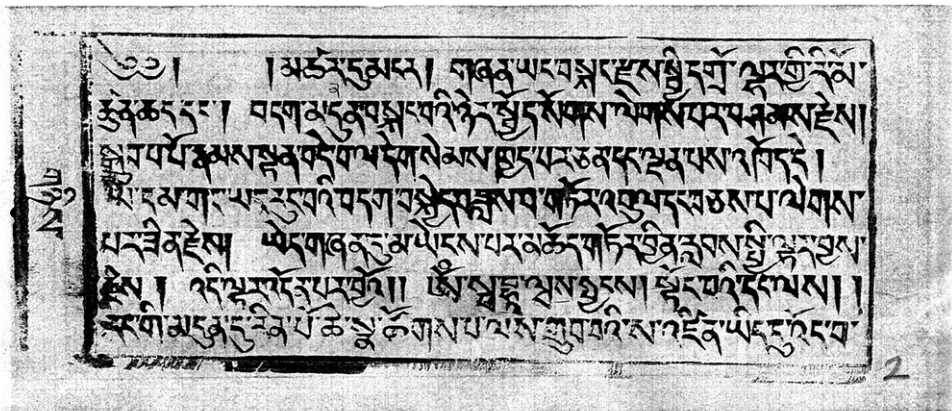 ༄༅། །མཚན་དུམངར། གཞན་ཡང་བསྐང་རྫས་སྤྱི་དགྲོ་ལྟར་གྱི་རི་མོ་
ཚུན་ཆད་དང་། བདག་མདུན་བསྐང་བའི་ཉེར་སྤྱོད་སོགས་ལེགས་པར་བཤམས་རྗེས།
སྒྲུབ་པ་པོ་རྣམས་སྟན་བདེ་བ་ལ་དིག་སེམས་ཁྱད་པར་ཅན་དང་ལྡན་པས་འཁོད་དེ།
བདག་བསྐྱེད་བཟླས་བ་གཏོར་འབུལ་དང་བཅས་པ་ལེགས་
པར་ཟིན་རྗེས། ཡིད་གཞན་དུ་མ་ཡེངས་པར་མཆོད་གཏོར་བྱིན་རླབས་སྤྱི་ལྟར་བྱས་
རྗེས། འདི་ལྟར་འདོན་པར་བྱའོ།། ཨོཾ་སྭ་བྷཱ་ལྦས་སྦྱངས། སྟོང་པའི་ངང་ལས། །
རང་གི་མདུན་དུ་རིན་པོ་ཆེ་སྣ་ཚོགས་པ་ལས་གྲུབ་པའི་ས་འཛིན་ཡིད་དུ་འོང་བ་
2